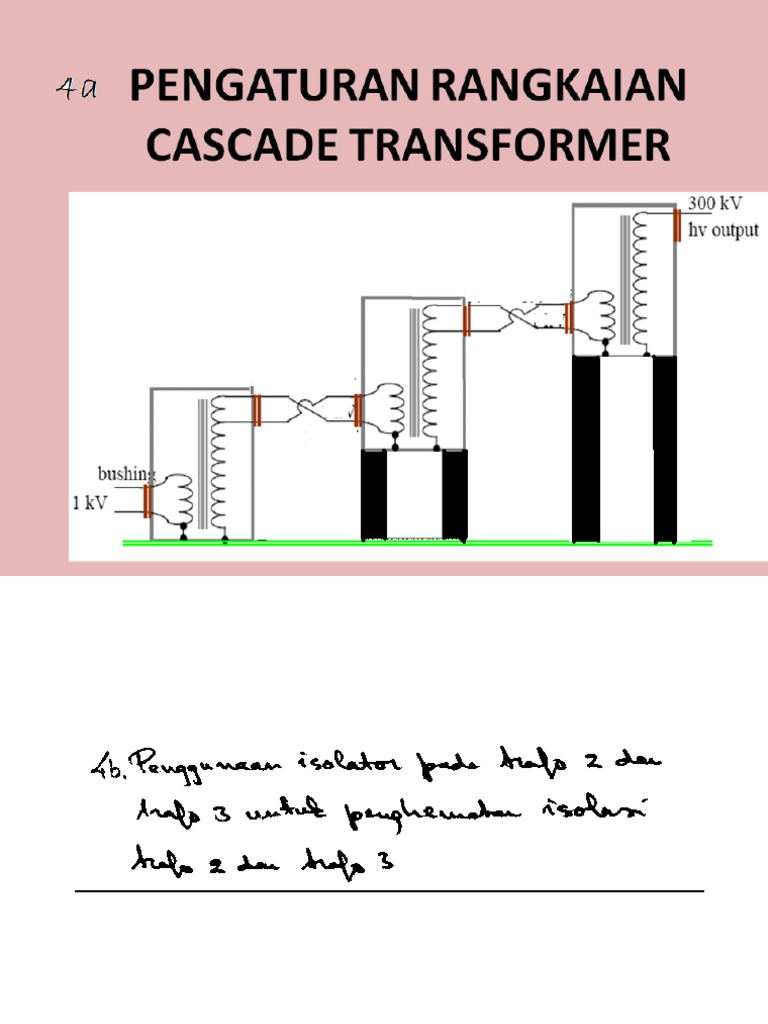 4a PENGATURAN RANGKAIAN
CASCADE TRANSFORMER
300 kV
hv output
bushing
1 kV
4b. Penggunaan isolator pada trafo 2 dan
trafo 3 untuk penghematan isolasi
trafo 2 dan trafo 3